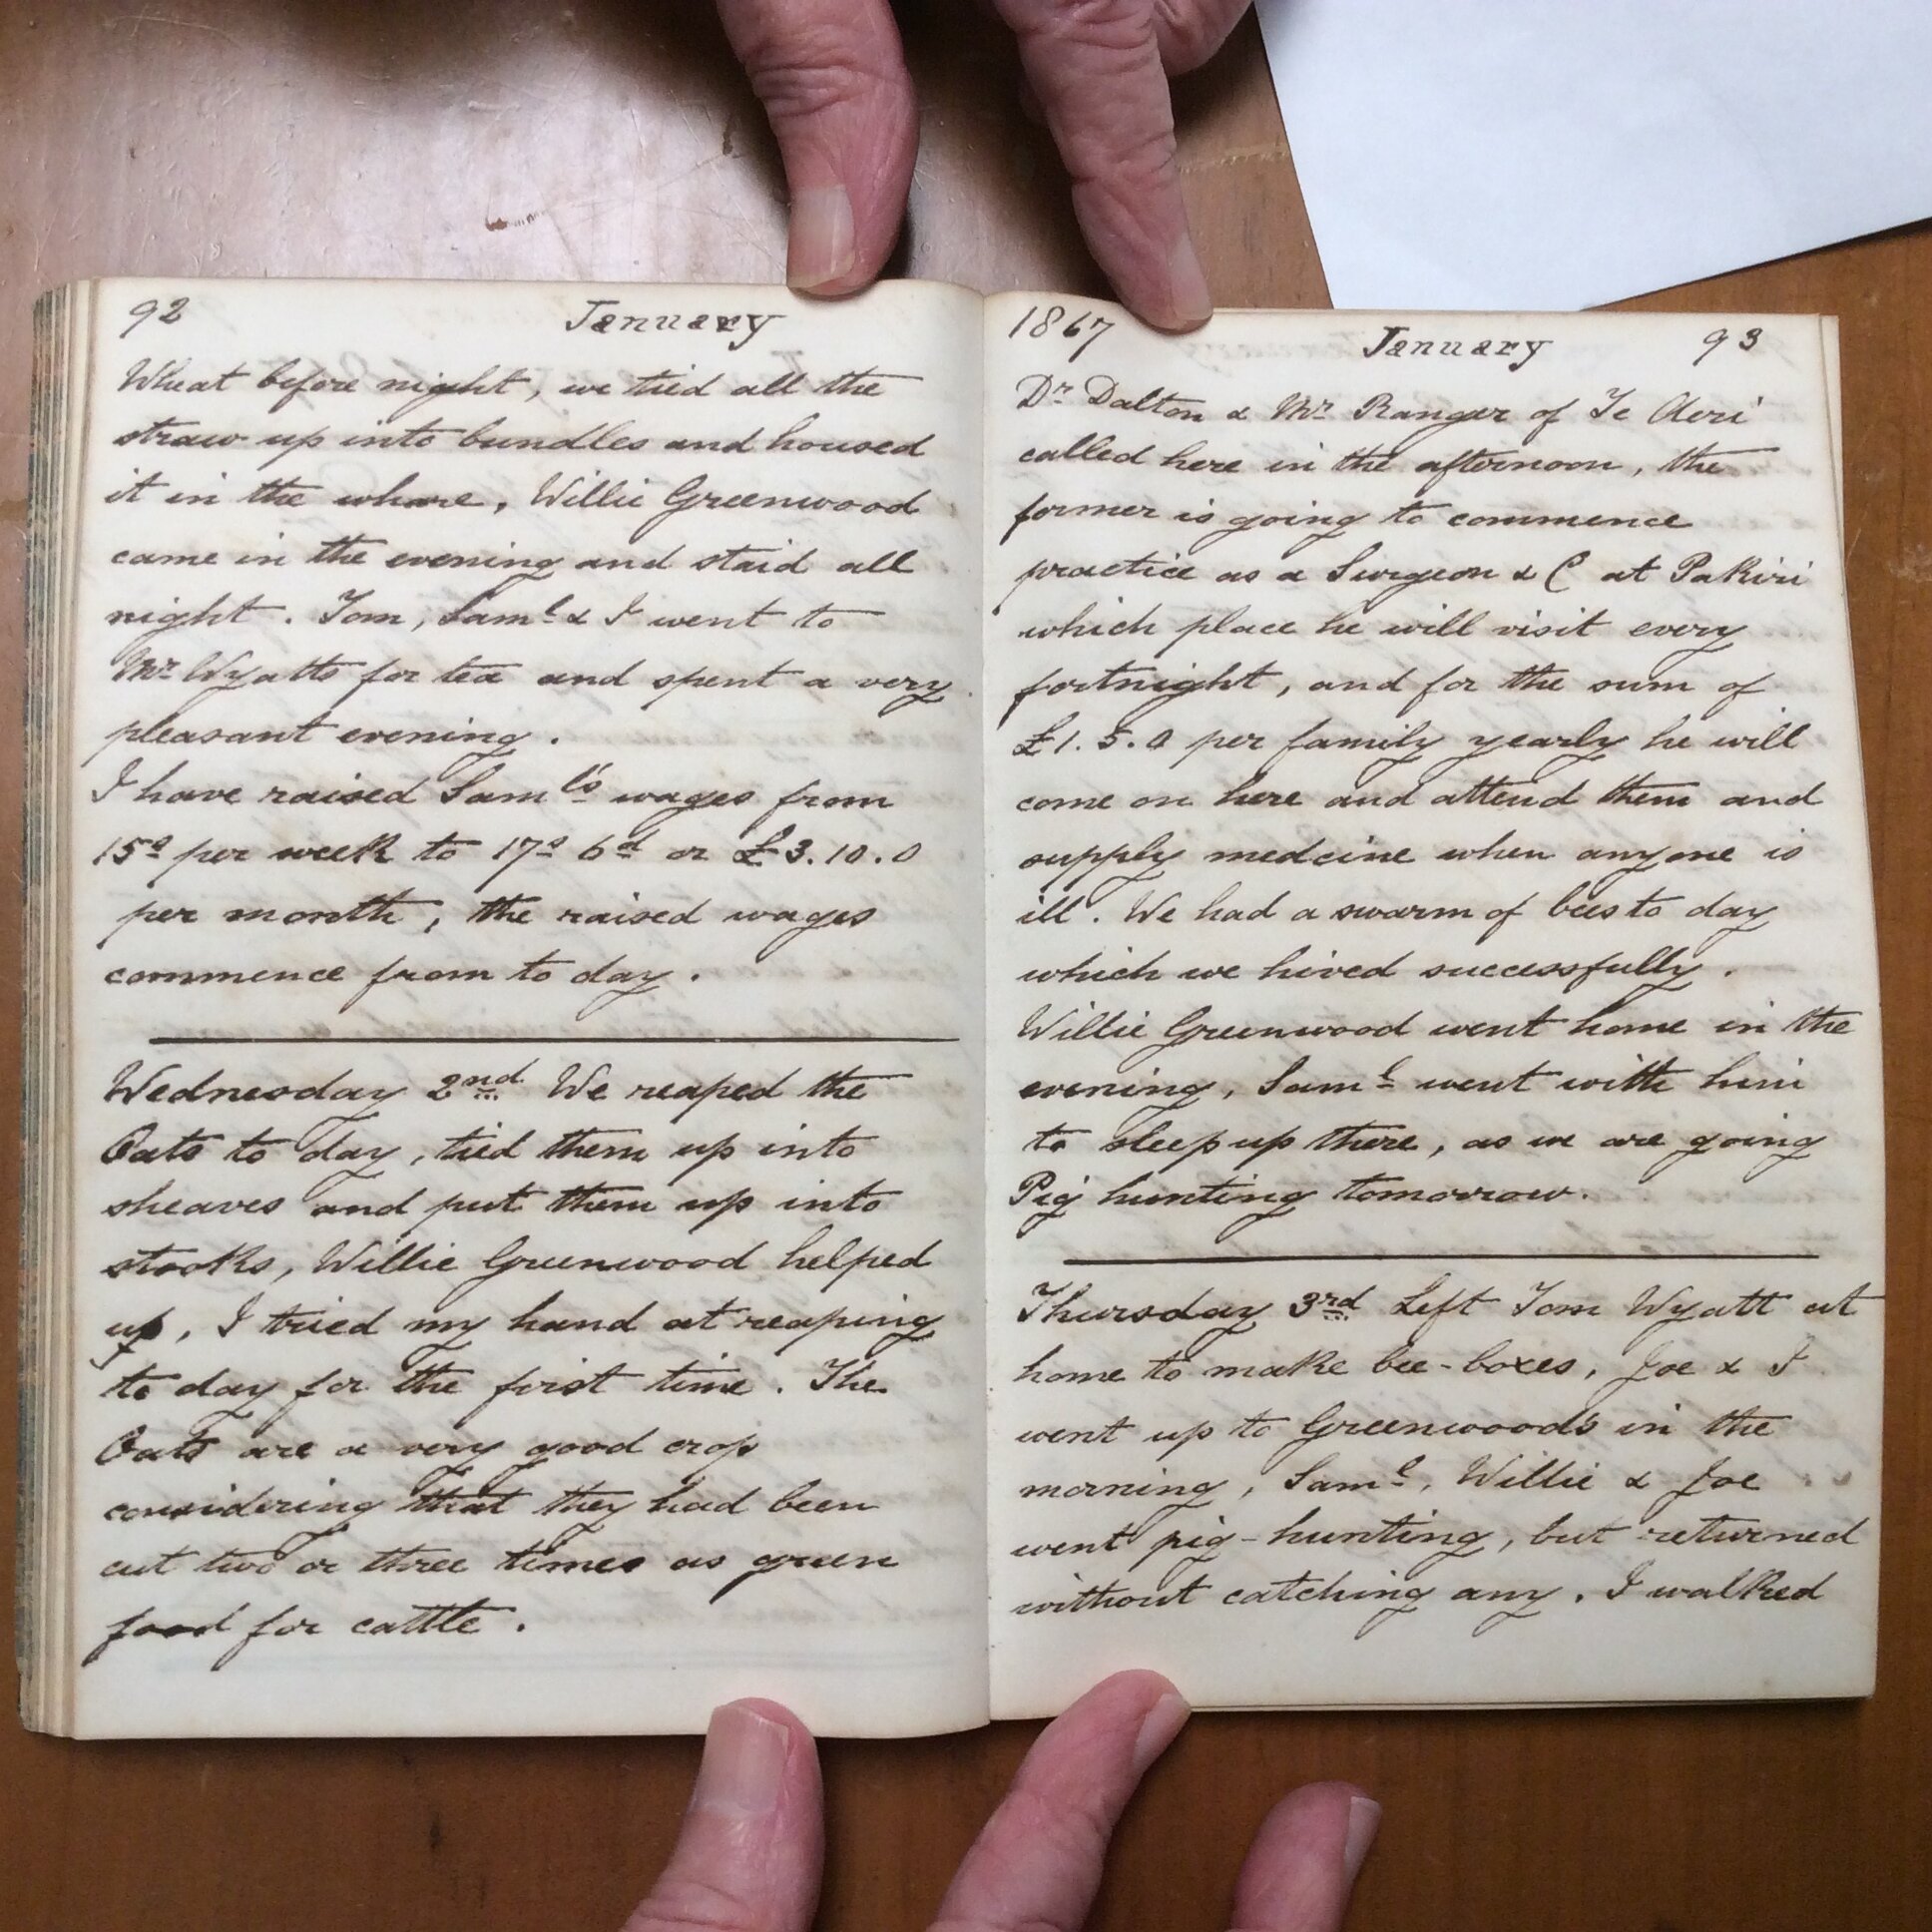 92 January
Wheat before night, we tied all the
straw up into bundles and housed
it in the whare, Willie Greenwood
came in the evening and staid all
night. Tom, Saml & I went to
Mr Wyatts for tea and spent a very
pleasant evening.
I have raised Saml's wages from
15s per week to 17s 6d or £3.10.0
per month, the raised wages
commence from to day.
Wednesday 2nd We reaped the
Oats to day, tied them up into
sheaves and put them up into
stooks, Willie Greenwood helped
us, I tried my hand at reaping
to day for the first time. The
Oats are a very good crop
considering that they had been
cut two or three times as green
food for cattle.
1867 January 93
Dr Dalton & Mr Ranger of Te Aeri
called here in the afternoon, the
former is going to commence
practice as a Surgeon & C at Pakiri
which place he will visit every
fortnight, and for the sum of
£1.5.0 per family yearly he will
come on here and attend them and
supply medcine when anyone is
ill. We had a swarm of bees to day
which we hived successfully.
Willie Greenwood went home in the
evening, Saml went with him
to sleep up there, as we are going
Pig hunting tomorrow.
Thursday 3rd Left Tom Wyatt at
home to make bee-boxes, Joe & I
went up to Greenwood's in the
morning, Saml, Willie & Joe
went pig-hunting, but returned
without catching any. I walked